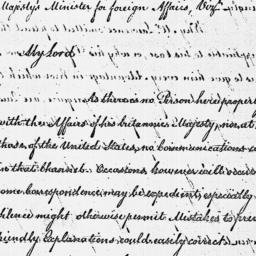 Majesty's Minister for foreign Affairs,
My Lord
As there is no Person here properly
with the Affairs of his britannic Majesty, nor at
those of the United States, no communications c
in that channel. Occasions however will occur
ome correspondence may be expedient, especially
silence might otherwise permit Mistakes to prev
friendly Explanations could easily correct.